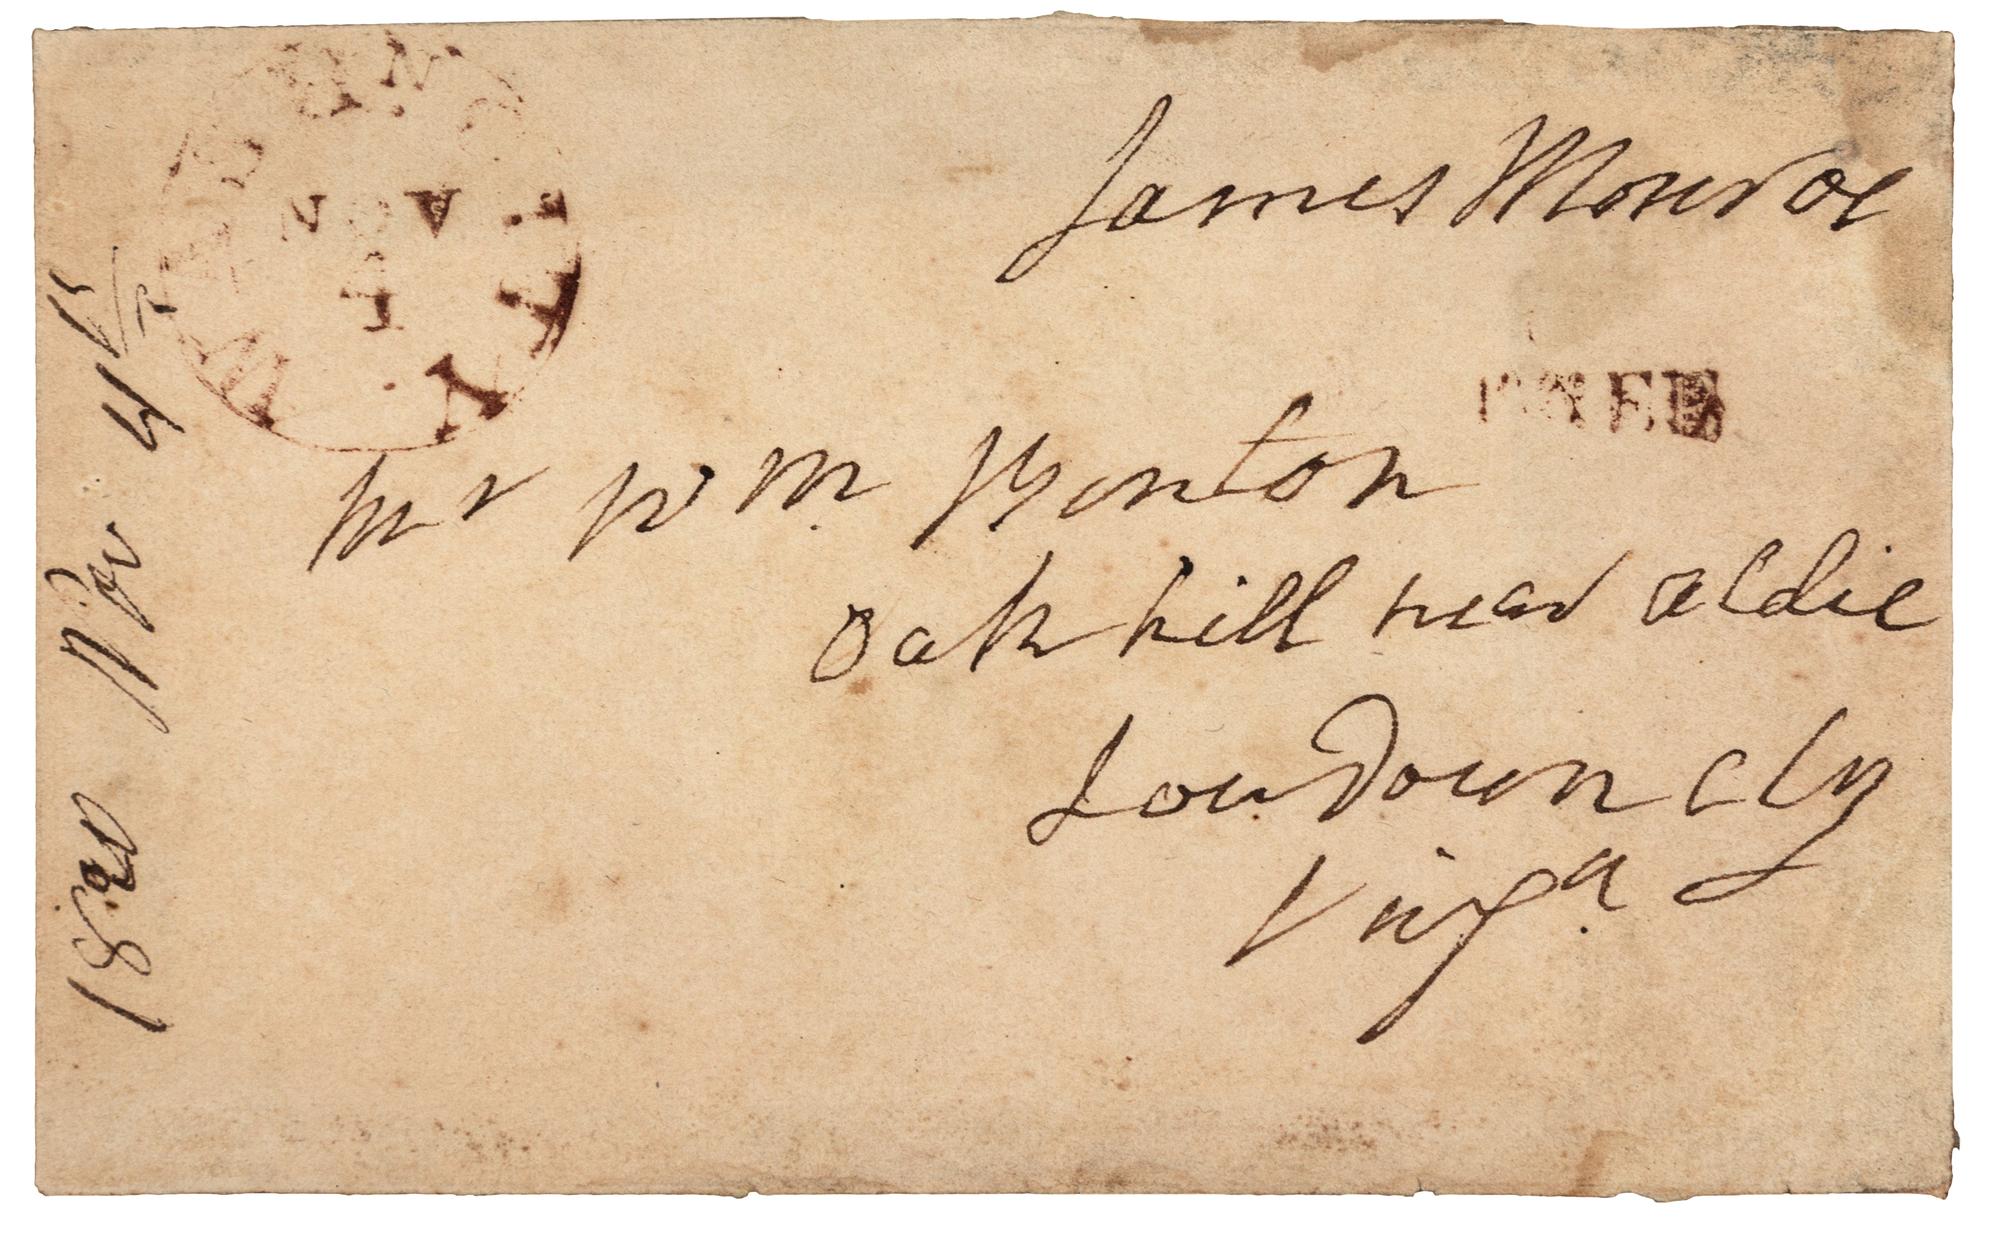 WASHN. CITY
NOV
James Monroe
FREE
Mr Wm Benton
Oak hill near aldie
Loudoun cty
Virga
1820 Nov 4th